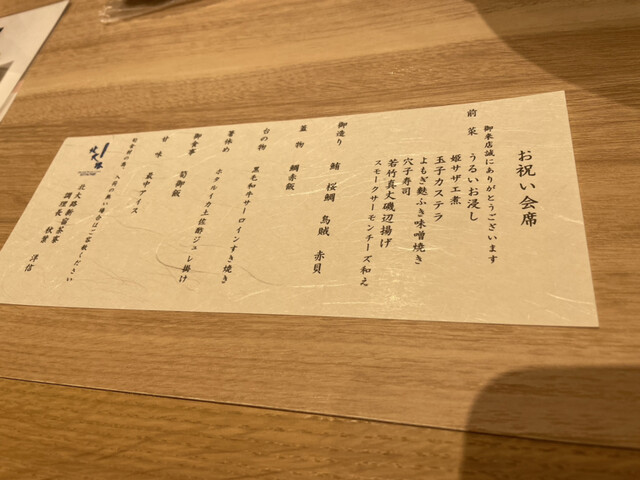 お祝い会席
御来店誠にありがとうございます
前菜 うるいお浸し
姫サザエ煮
玉子カステラ
よもぎ麩ふき味噌焼き
穴子寿司
若竹真丈磯辺揚げ
スモークサーモンチーズ和え
御造り 鮪 桜鯛 烏賊 赤貝
蓋物 鯛赤飯
台の物 黒毛和牛サーロインすき焼き
箸休め ホタルイカ土佐酢ジュレ掛け
御食事 筍御飯
甘味 最中アイス
入荷の無い場合はご容赦ください
北大路新宿茶寮
調理長 秋葉 洋信
北大路